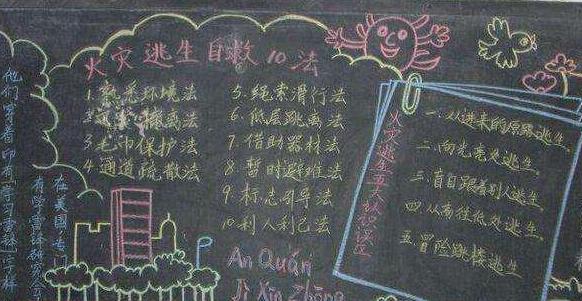 火灾逃生自救10法
1.熟悉环境法
3.毛巾保护法
4.通道疏散法
5.绳索滑行法
6.低层跳离法
7.借助器材法
8.暂时避难法
9.标志引导法
10.利人利己法
An Quán
Jì Xīn Zhōng
火灾逃生
误区
一.从进来的原路逃生.
二.向光亮处逃生.
三.盲目跟着别人逃生.
四.从高往低处逃生.
五.冒险跳楼逃生.
他们穿着印有"学习雷锋"字样
在美国专门
有学雷锋研究会